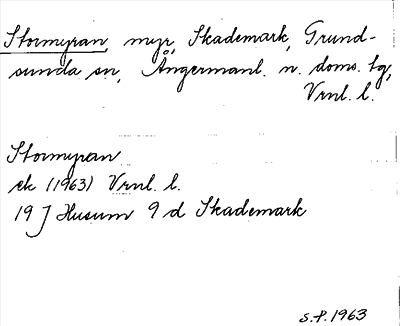 Stormyran, myr, Skademark, Grund-
sunda sn, Ångermanl. n. doms. tg,
Vrnl. l.
Stormyran
ek (1963) Vrnl. l.
19 J Husum 9 d Skademark
S.P. 1963